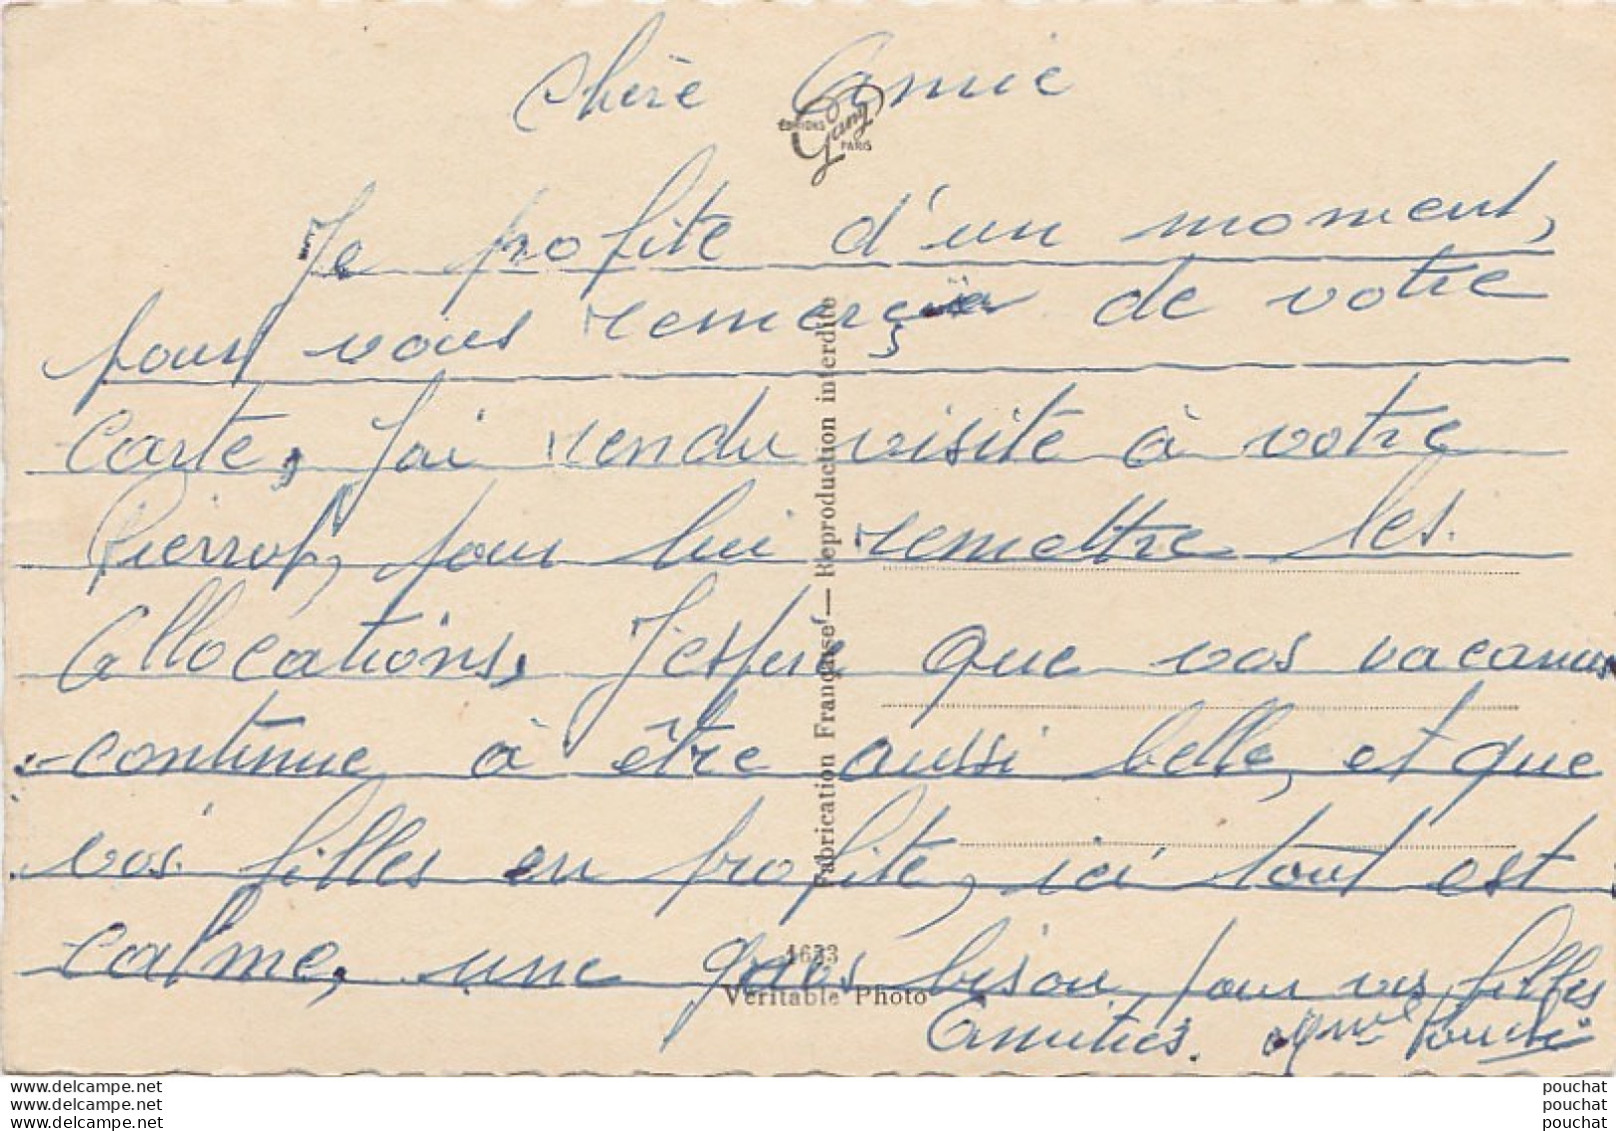 chère Amie
EDITIONS
Gany
PARIS
Je profite d'un moment,
pour vous remerçier de votre
Carte, J'ai rendu visite à votre
Pierrot, pour lui remettre les
Allocations, J'espère que vos vacances
continue à être aussi belle, et que
vos filles en profite, ici tout est
calme, une gros bisou pour vos filles
Amitiés. Mme
Fabrication Française — Reproduction interdite
1633
Véritable Photo
www.delcampe.net
www.delcampe.net
www.delcampe.net
pouchat
pouchat
pouchat